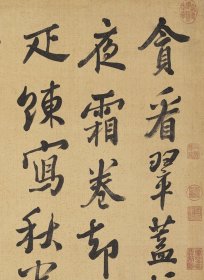 貪看翠蓋
夜霜卷却
疋練寫秋